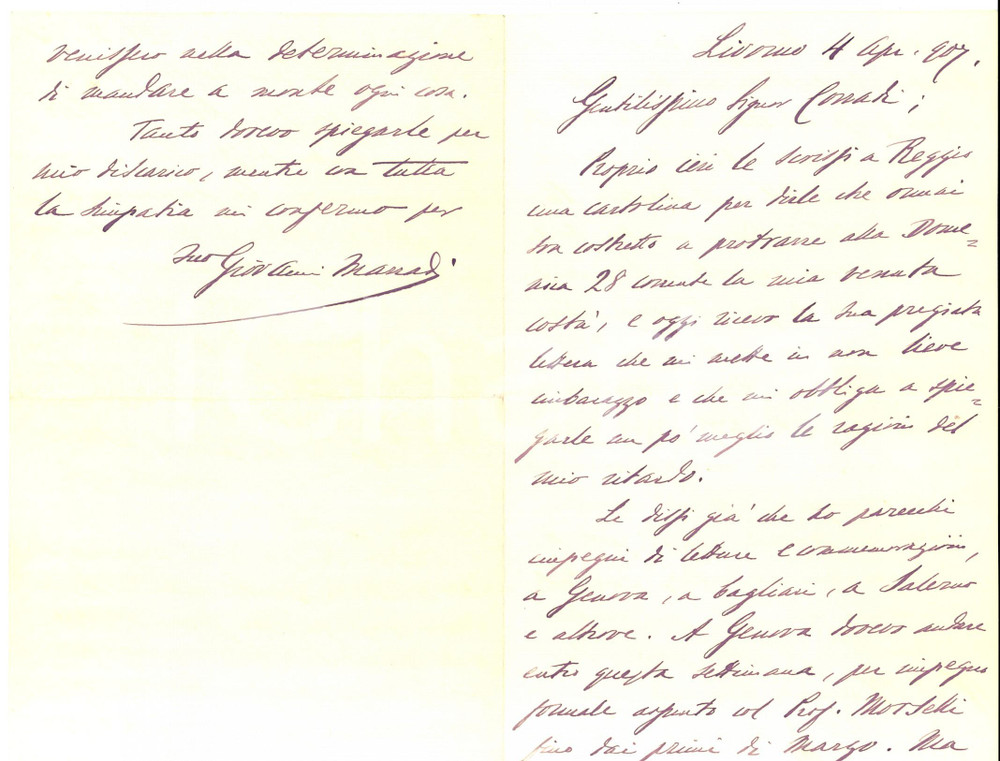 Livorno 4 Apr. 907.
Gentilissimo Signor Corradi;
Proprio ieri le scrissi a Reggio
una cartolina per dirle che omai
son costretto a protrarre alla Dome=
nica 28 corrente la mia venuta
costà, e oggi ricevo la sua pregiata
lettera che mi mette in non lieve
imbarazzo e che mi obbliga a spie=
garle un po' meglio le ragioni del
mio ritardo.
Le dissi già che ho parecchi
impegni di letture e commemorazioni,
a Genova, a Cagliari, a Salerno
e altrove. A Genova dovevo andare
entro questa settimana, per impegno
formale assunto col Prof. Morselli
fino dai primi di Marzo. Ma
venissero nella determinazione
di mandare a monte ogni cosa.
Tanto dovevo spiegarle per
mio discarico, mentre con tutta
la simpatia mi confermo per
suo Giovanni Marradi